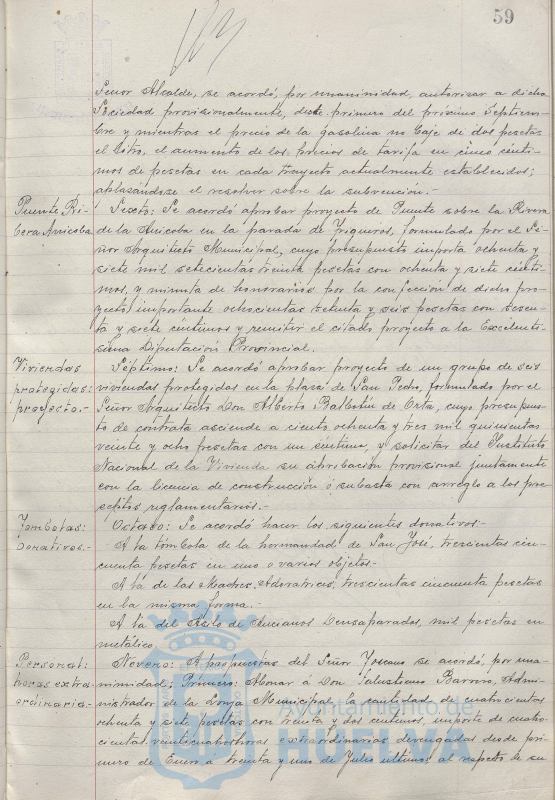 59
Señor Alcalde, se acordó, por unanimidad, autorizar a dicha
Sociedad provisionalmente, desde primero del próximo Septiem-
bre y mientras el precio de la gasolina no baje de dos pesetas
el litro, el aumento de los precios de tarifa en cinco cénti-
mos de pesetas en cada trayecto actualmente establecidos;
aplazándose el resolver sobre la subvención.-
Puente Ri-
bera Anicoba
Sexto: Se acordó aprobar proyecto de Puente sobre la Rivera
de la Anicoba en la parada de Trigueros, formulado por el Se-
ñor Arquitecto Municipal, cuyo presupuesto importa ochenta y
siete mil setecientas treinta pesetas con ochenta y siete cénti-
mos, y minuta de honorarios por la confección de dicho pro-
yecto importante ochocientas setenta y seis pesetas con sesen-
ta y siete céntimos y remitir el citado proyecto a la Excelentí-
sima Diputación Provincial.
Viviendas
protegidas:
proyecto.-
Séptimo: Se acordó aprobar proyecto de un grupo de seis
viviendas protegidas en la plaza de San Pedro, formulado por el
Señor Arquitecto Don Alberto Balbotín de Orta, cuyo presupues-
to de contrata asciende a ciento ochenta y tres mil quinientas
veinte y ocho pesetas con un céntimo, y solicitar del Instituto
Nacional de la Vivienda su aprobación provisional juntamente
con la licencia de construcción ó subasta con arreglo a los pre-
ceptos reglamentarios.-
Tómbolas:
Donativos.-
Octavo: Se acordó hacer los siguientes donativos:-
A la tómbola de la hermandad de San José, trescientas cin-
cuenta pesetas en uno o varios objetos.-
A la de las Madres Adoratrices, trescientas cincuenta pesetas
en la misma forma.-
A la del Asilo de Ancianos Desamparados, mil pesetas en
metálico
Personal:
horas extra-
ordinarias.-
Noveno: A propuestas del Señor Toscano se acordó, por una-
nimidad; Primero: Abonar á Don Salustiano Barroso, Admi-
nistrador de la Lonja Municipal, la cantidad de cuatrocientas
ochenta y siete pesetas con treinta y dos céntimos, importe de cuatro-
cientas veinticuatro horas extraordinarias devengadas desde pri-
mero de Enero a treinta y uno de Julio últimos al respecto de su
Ayuntamiento de
HUELVA